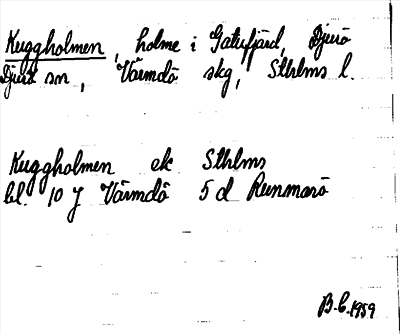 Kuggholmen, holme i Gatufjärd, Djurö
Djurö sn, Värmdö skg, Sthlms l.
Kuggholmen ek Sthlms
bl. 10 J Värmdö 5 d Runmarö
B.C. 1959